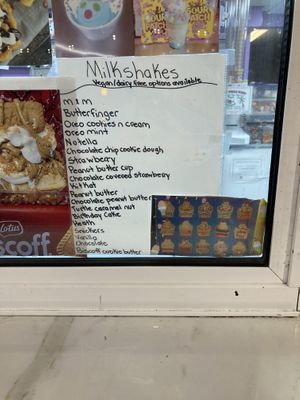 SOUR PATCH
Milkshakes
Vegan/dairy free options available
M&M
Butterfinger
Oreo cookies n cream
Oreo mint
Nutella
Chocolate chip cookie dough
Strawberry
Peanut butter cup
Chocolate covered strawberry
Kit Kat
Peanut butter
Chocolate peanut butter
Turtle caramel nut
Birthday Cake
Heath
Snickers
Vanilla
Chocolate
Biscoff cookie butter
Lotus
scoff